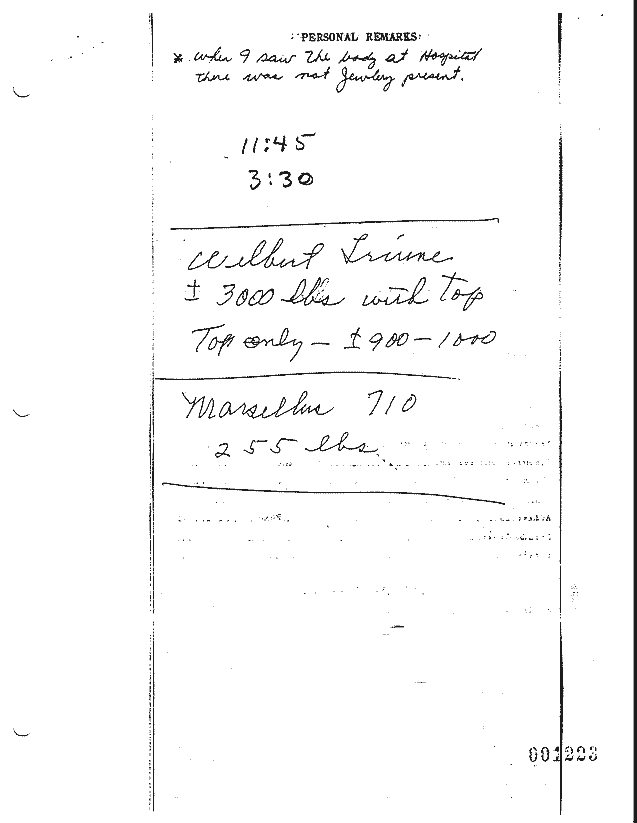 PERSONAL REMARKS
* when I saw the body at Hospital
there was not Jewlery present.
11:45
3:30
Wilbert Triune
± 3000 lbs with Top
Top only - ± 900 - 1000
Marsellus 710
255 lbs.
001223